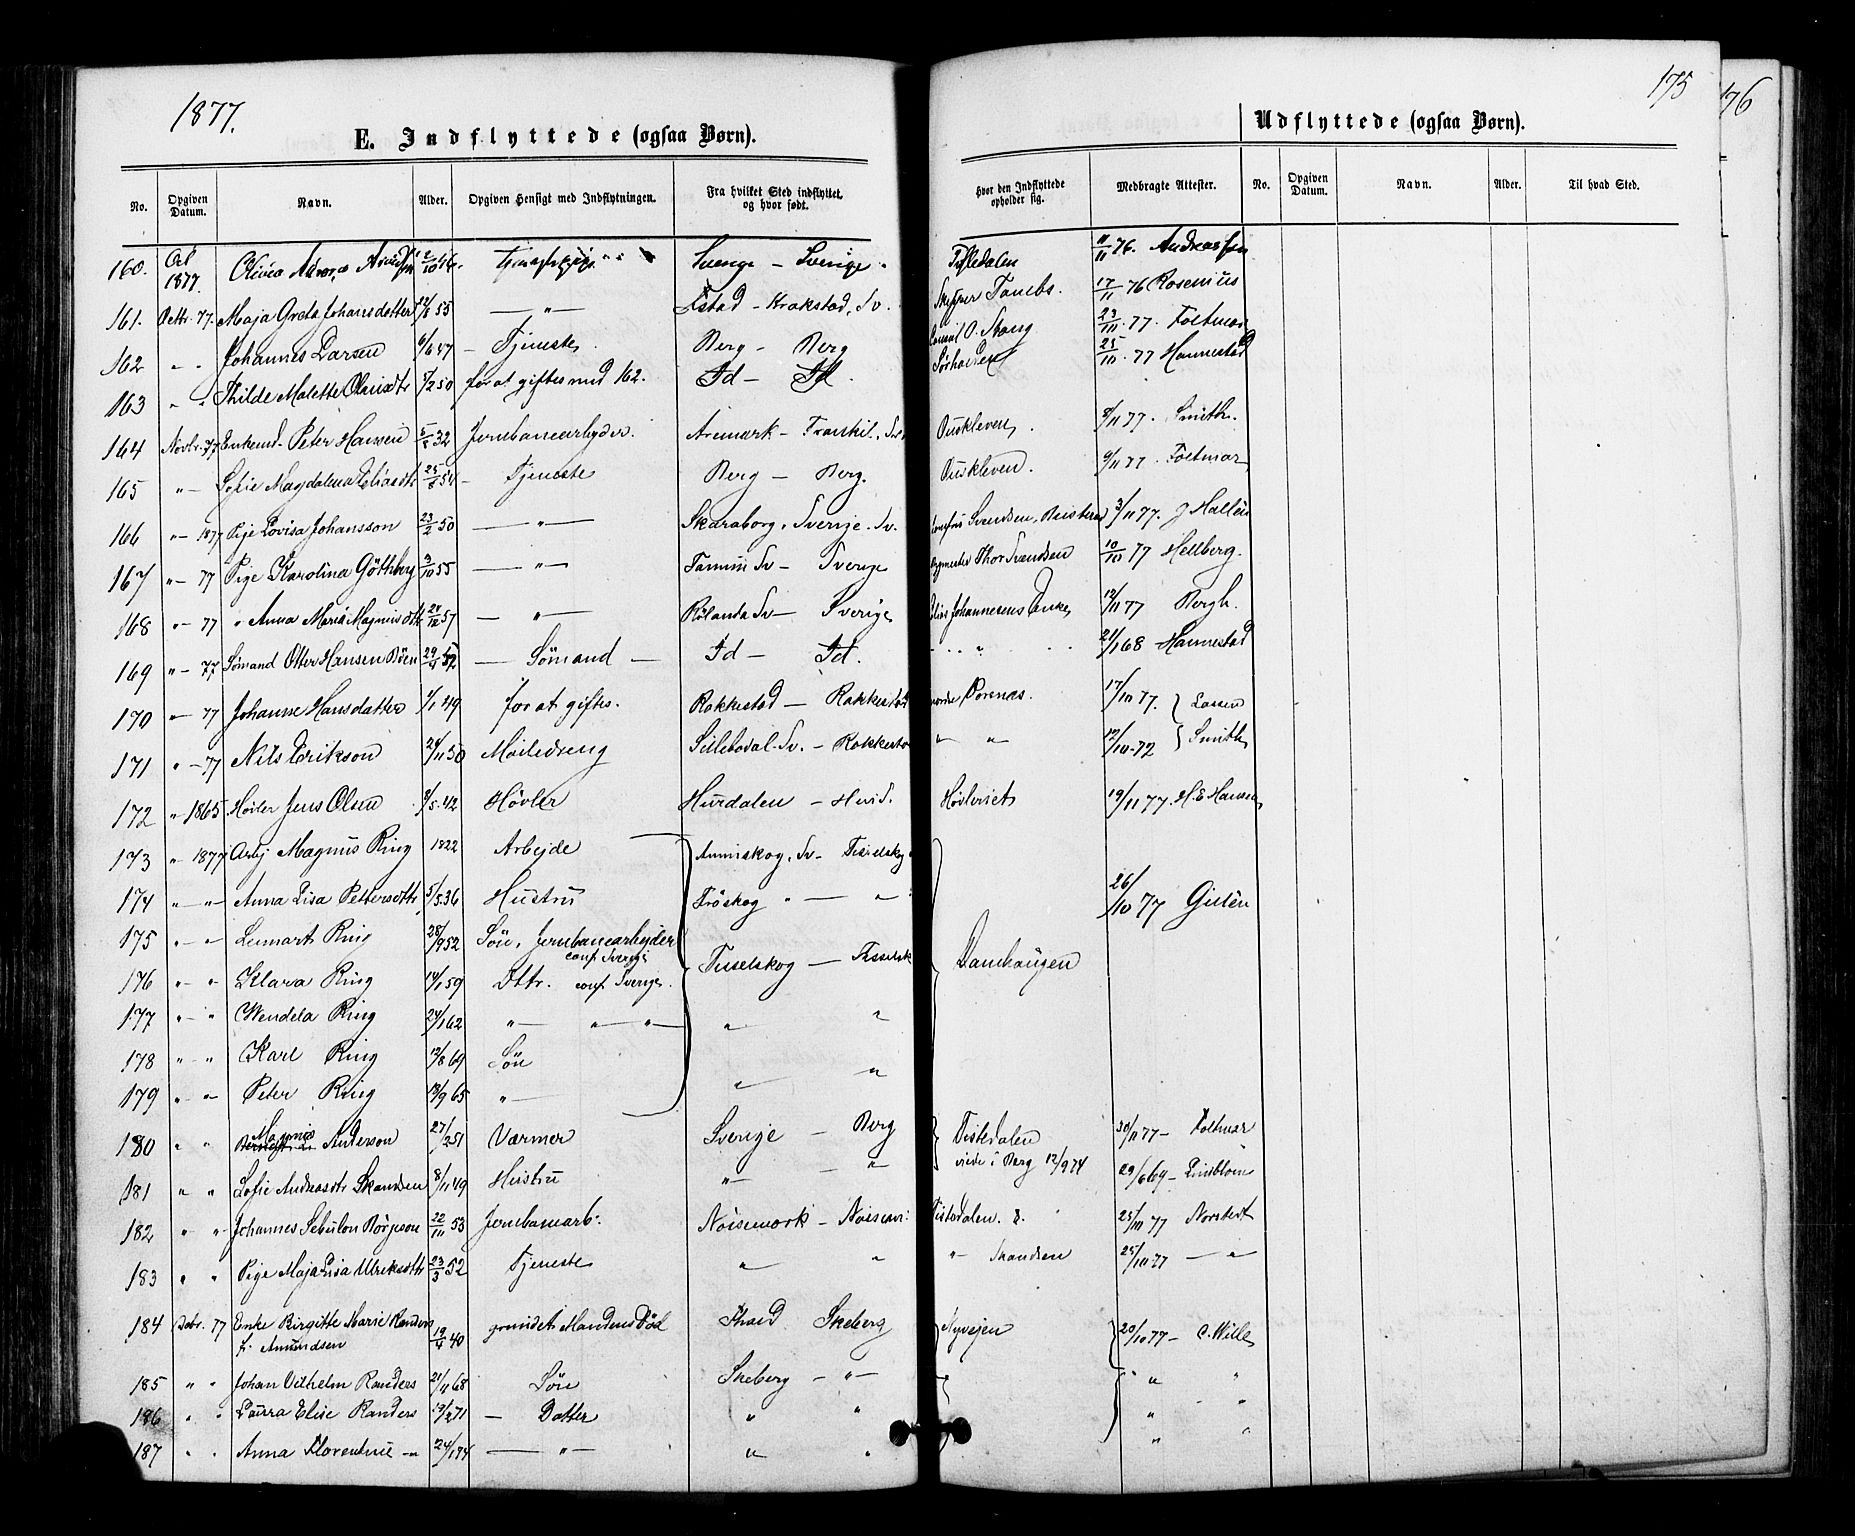 1877.
E. Indflyttede (ogsaa Børn).
No. Opgiven Datum. Navn. Alder. Opgiven Hensigt med Indflytningen. Fra hvilket Sted indflyttet og hvor født.
175
176
Udflyttede (ogsaa Børn).
Hvor den Indflyttede opholder sig. Medbragte Attester. No. Opgiven Datum. Navn. Alder. Til hvad Sted.
160. 1877. Olivia Sverige Tistedalen 11/11 76.
161. Octbr. 77. Maja Greta Johansdatter 55 — " — Krokstad, Sv. Tanebs. 17/11 76 Rosenius
162 " " Johannes Larsen 6/6 47 — Tjeneste Berg — Berg O. Stang 23/10. 77. Foltmar
163 " " 50 for at giftes med 162. Id — Id. 25/10. 77 Hannestad
164 Novbr. 77 Enkemd. Peter Hansen 32 Jernbanearbejder. Aremark — Ouskleven, 8/11 77. Smith.
165 " — Sofie Magdalena Eliasdtr 25/8 54 — Tjeneste Berg — Berg. Ouskleven. 9/11 77. Foltmar
166 " — 1877 Pige Lovisa Johansson 23/2 50 — " — Skaraborg, Sverige. Sv. Svendsen, 3/11 77. J Hallén
167 " — 77 Pige Karolina Göthberg 3/10 55 — " — Tanum Sv — Sverige Thor Svendsen 10/10 77 Hellberg.
168 " — 77 " Anna Maria Magnusdtr 57 — " — Rölanda Sv — Sverige Johannesens Enke, 12/11 77 Bergh.
169 " — 77 Sømand Otter Hansen Böen 29/4 52 — Sømand — Id — Id. 21/1 68 Hannestad
170 " — 77 Johanne Hansdatter 1/1 49 for at giftes. Rakkestad — Rakkestad Pornæs. 17/10 77. Lassen
171 " — 77 Nils Erikson 24/11 50 Mølledreng Sillebodal. Sv. — Rakkestad " " 12/10. 72 Smith
172 " 1865 Høvler Jens Olsen 4/5. 42 Høvler Hurdalen — Hurd. Høvleriet 19/11 77. H. E Hansen
173 " 1877 Arbj Magnus Ring 1822 Arbejde Ånniskog, Sv — Tisselskog
174 " — " — Anna Lisa Pettersdtr 5/5. 36 Hustru Fröskog " — " 26/10 77 Gislén
175 " — " Lennart Ring 28/9 52 Søn, Jernbanearbejder
conf Sverige
176 " — " Klara Ring 14/1 59 Dttr. conf Sverige. Tisselskog — Tisselsk Damhaugen
177 " — " Wendela Ring 24/1 62 " — " — " — " "
178 " — " Karl Ring 12/8 69 Søn
179 " — " Peter Ring 18/9 65 " — " "
180 " " Magnus Anderson 27/2 51 Varmer Sverige — Berg Tistedalen 30/11 77 — Foltmar
viede i Berg 12/9 74
181 " " Sofie Andreasdtr Skandsen 8/11 49 Hustru " — — " 29/6 69 — Lindblom
182 " " Johannes Sebulon Börjeson 22/10 53 Jernbanearb. Noisemark — Tistedalen. 25/10 77 Norstedt
183 " " Pige Maja Lisa Ulriksdtr 23/3 52 Tjeneste " " " — Skandsen 25/10 77 — " —
184 Debr. 77 Enke Birgitte Marie Randers
f. Amundsen 19/4 40 grundet Mandens Død Skeberg Nyvejen 20/10 77 — C. Wille
185 " " Johan Vilhelm Randers 21/11 68 Søn Skeberg — " — " "
186 " " Laura Elise Randers 19/2 71 — Datter " " " "
187 " " Anna Florentine — " 24/1 74 — " — " " " "